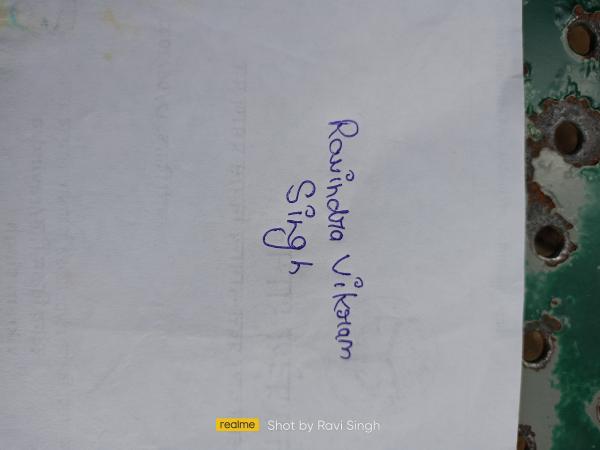 Ravindra Vikram
Singh
realme Shot by Ravi Singh